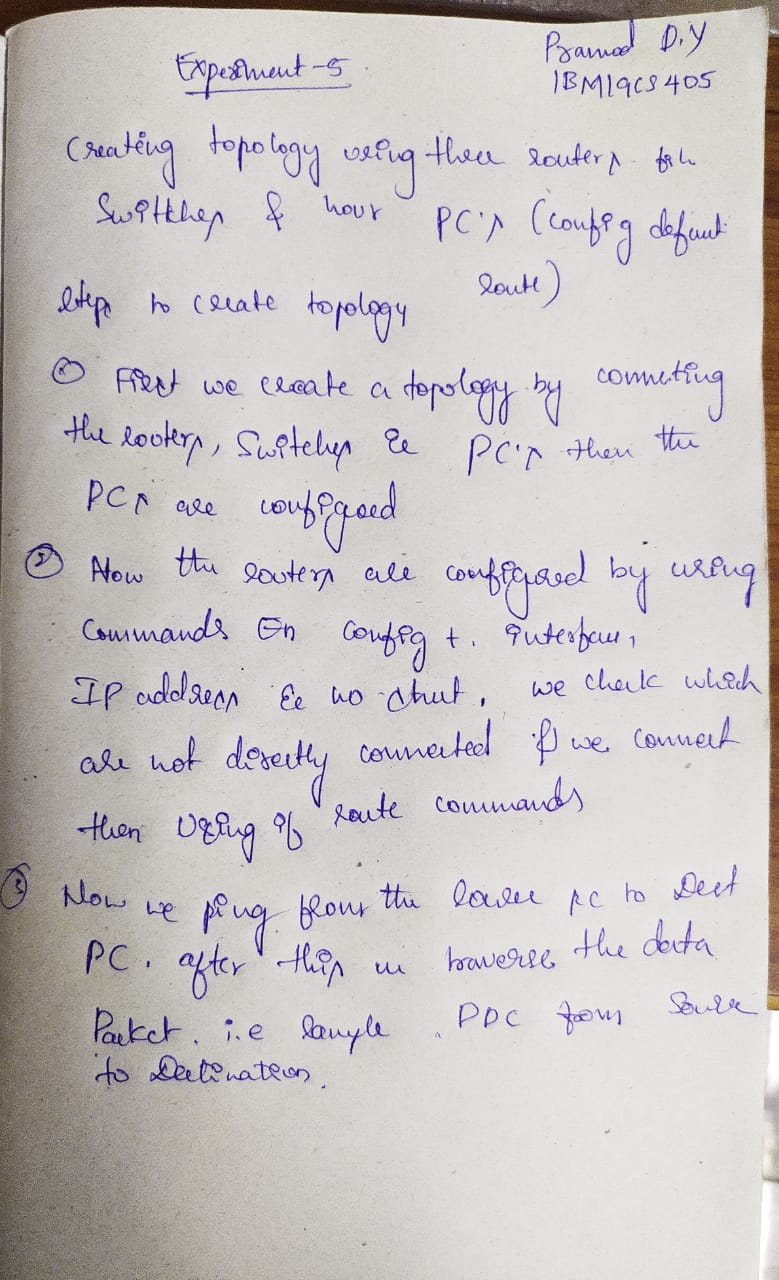 Pramod D.Y
Experiment-5
1BM19CS405
Creating topology using three routers
Switches & hour PC's (config defaut
route)
steps to create topology
① First we create a topology by conneting
the rooters, Switches & PC's then the
PCs are configared
② Now the routers are configared by using
Commands En config t. interface,
IP address & no shut, we check which
are not directly connected if we connect
then using ip route commands
③ Now we ping from the PC to Dest
PC. after this we traverse the data
Packet. i.e PDC from
to Destination.